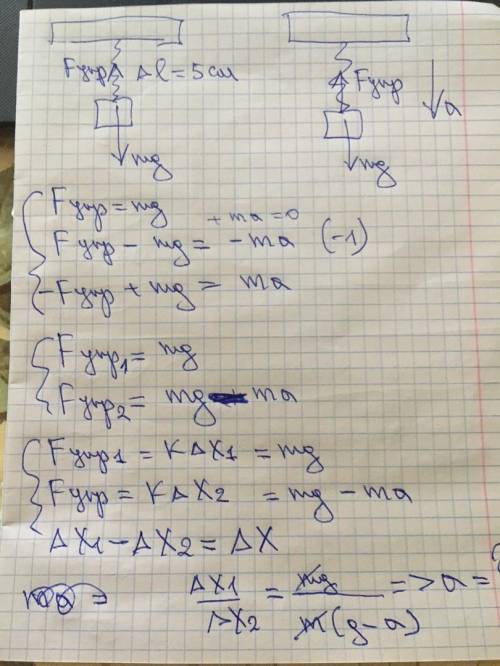 Fупр Δl = 5см Fупр a
mg mg
Fупр = mg + ma = 0
Fупр - mg = - ma (-1)
-Fупр + mg = ma
Fупр1 = mg
Fупр2 = mg - ma
Fупр1 = KΔX1 = mg
Fупр = KΔX2 = mg - ma
ΔX1 - ΔX2 = ΔX
=> ΔX1/ΔX2 = mg/m(g-a) => a =